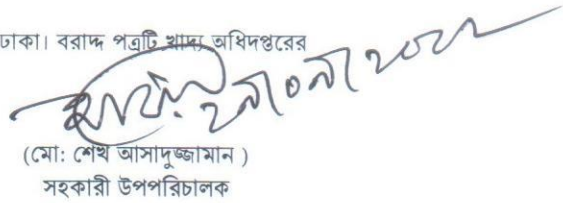 ঢাকা। বরাদ্দ পত্রটি খাদ্য অধিদপ্তরের
(মো: শেখ আসাদুজ্জামান )
সহকারী উপপরিচালক